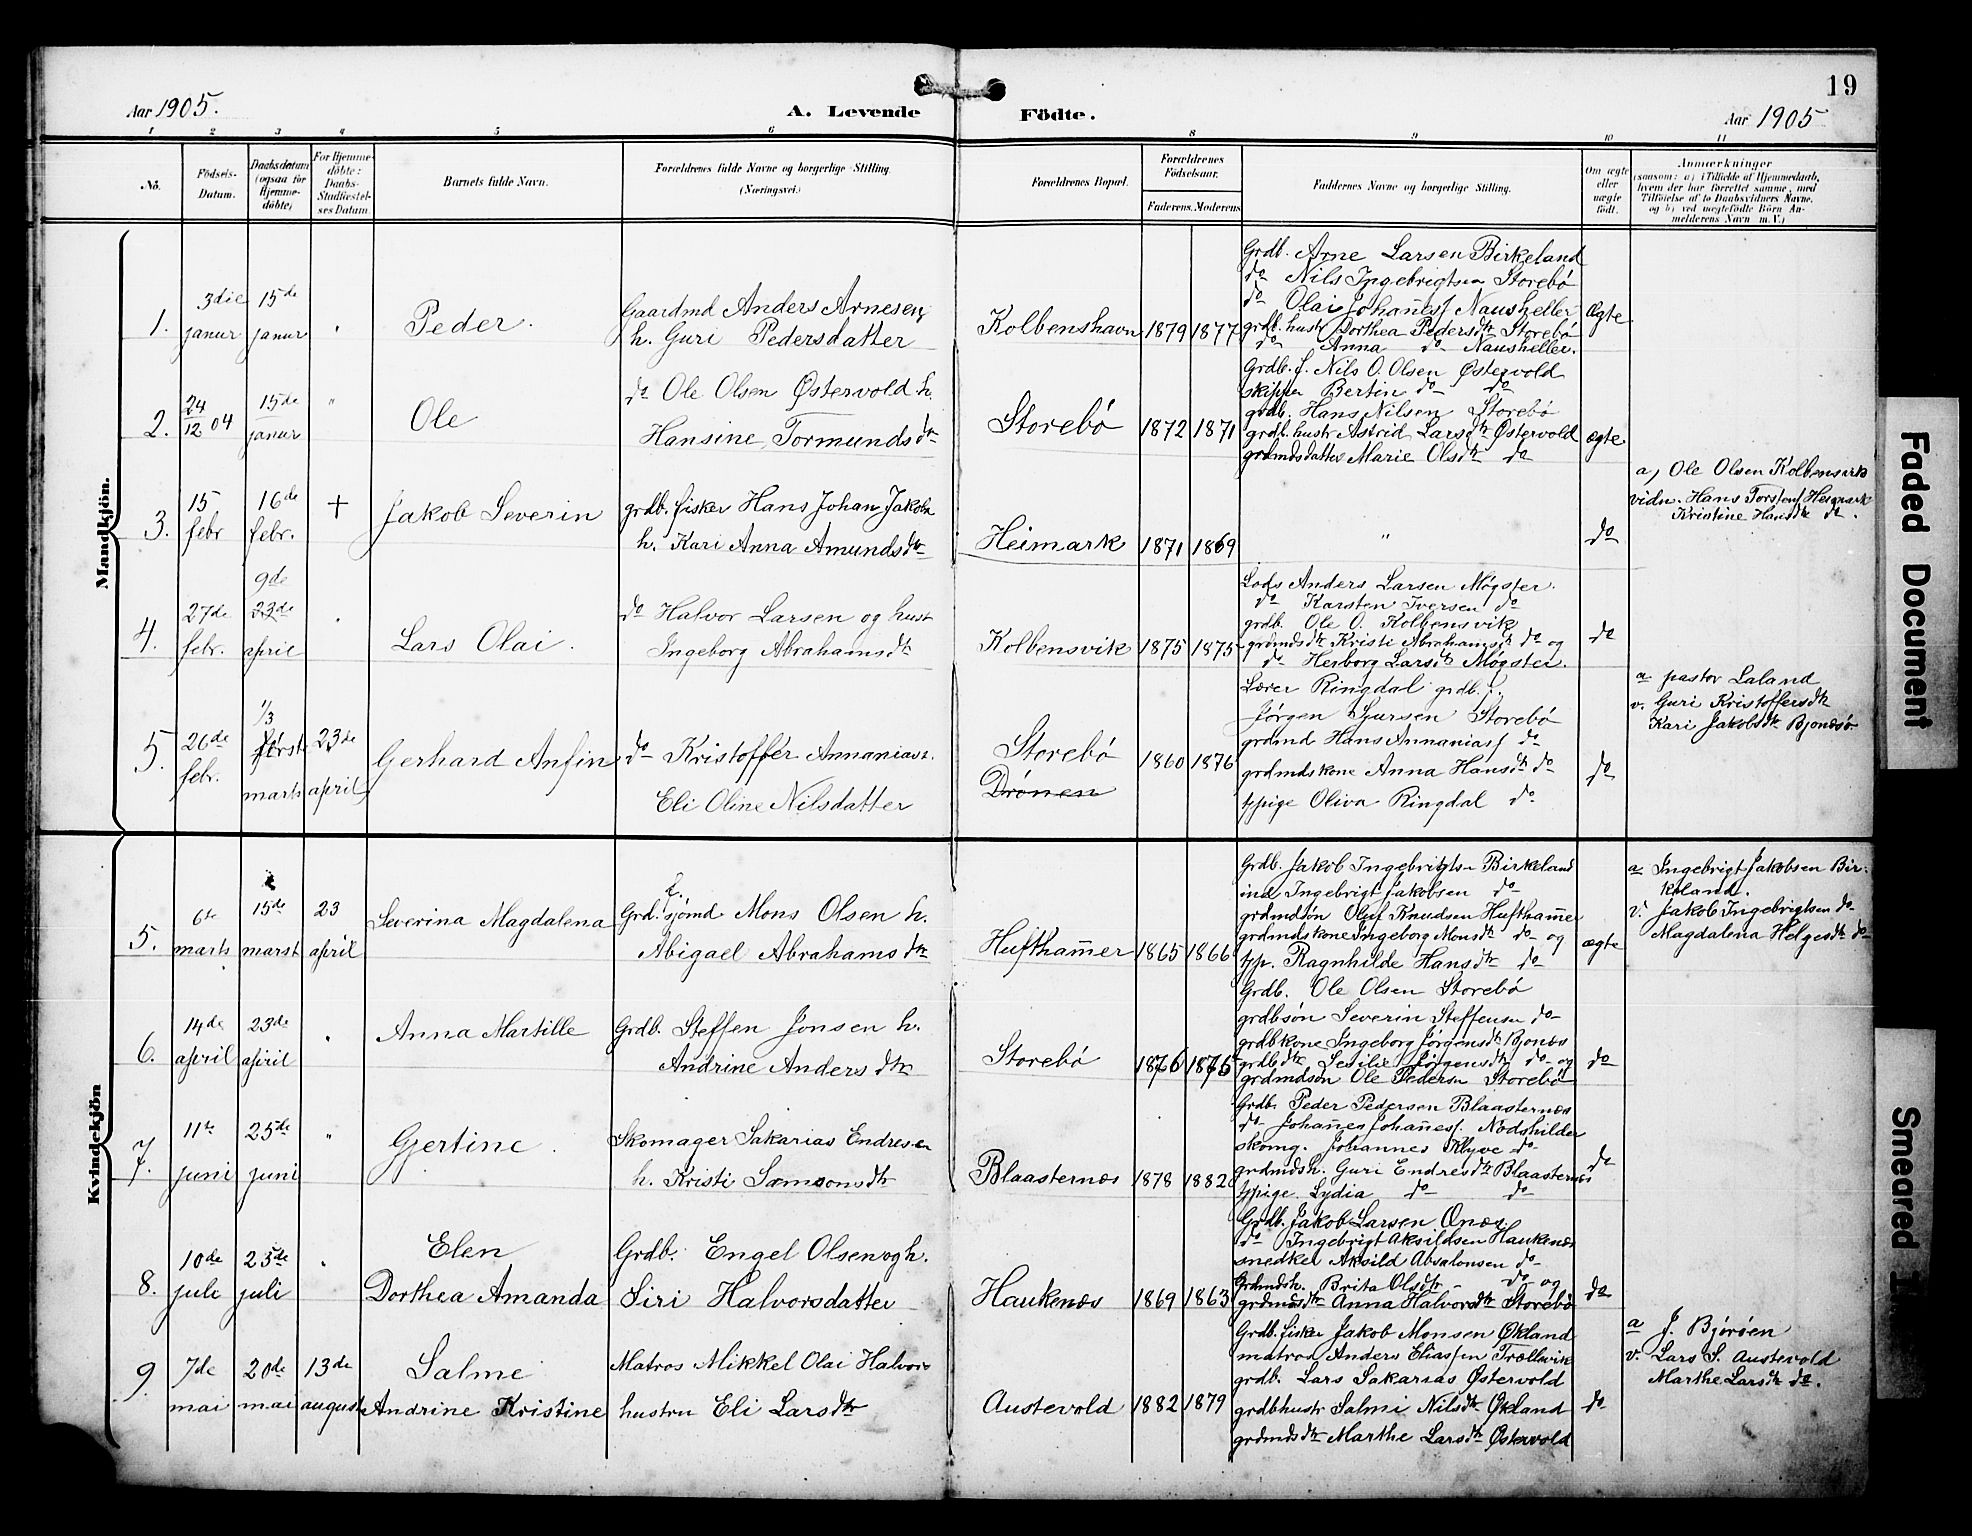 19
Aar 1905.
A. Levende
Födte.
Aar 1905
1 2 3 4 5 6 8 9 10 11
No.
Födsels-
Datum.
Daabsdatum
(ogsaa for
Hjemme-
döbte)
For Hjemme-
döbte:
Daabs-
Stadfæstel-
ses Datum
Barnets fulde Navn.
Forældrenes fulde Navne og borgerlige Stilling.
(Næringsvei.)
Forældrenes Bopæl.
Forældrenes
Födselsaar.
Faderens. Moderens
Faddernes Navne og borgerlige Stilling.
Om ægte
eller
uægte
födt.
Anmærkninger
(saasom: a) i Tilfælde af Hjemmedaab,
hvem der har forrettet samme, med
Tilföielse af to Daabsvidners Navne,
og b) ved uægtefödte Börn An-
melderens Navn m. V.)
Mandkjön.
1.
3die
janur
15de
janur
"
Peder.
Gaardmd Anders Arnesen,
h. Guri Pedersdatter
Kolbenshavn
1879
1877
Grdb. Arne Larsen Birkeland
do Nils Ingebrigtsen Storebö
do Olai Johaness Nausheller
grdb. hustr Dorthea Pedersdtr Storebö
do Anna do Nausheller.
Ægte
2.
24/12 04
15de
janur
"
Ole
do Ole Olsen Østervold h.
Hansine Tormundsdtr
Storebö
1872
1871
Grdb. f. Nils O. Olsen Østervold
skipper Bertin do do
grdb. Hans Nilsen Storebö
grdb. hustr Astrid Larsdtr Østervold
grdmdsdatter Marie Olsdtr do
ægte
3.
15
febr
16de
febr.
+
Jakob Severin
grdb. fisker Hans Johan Jakobsn
h. Kari Anna Amundsdtr
Heimark
1871
1869
"
do
a) Ole Olsen Kolbensvik
vidn. Hans Torstens Heimark
Kristine Hansdtr do.
4.
27de
febr.
9de
23de
april
"
Lars Olai.
do Halvor Larsen og hust
Ingeborg Abrahamsdtr
Kolbensvik
1875
1875
Lods Anders Larsen Møgster.
do Karsten Iversen do
grdb. Ole O. Kolbensvik
grdmdsdtr Kristi Abrahamsdtr do og
do Herborg Larsdtr Møgster.
do
5.
26de
febr.
1/3
først
marts
23de
april
Gerhard Anfin
do Kristoffer Annaniass.
Eli Oline Nilsdatter
Storebö
Drönen
1860
1876
Lærer Ringdal grdb. f.
Jörgen Sjursen Storebö
grdmd Hans Annaniass do
grdmdskone Anna Hansdtr do
tjpige Oliva Ringdal do
do
a pastor Laland
v. Guri Kristoffersdtr
Kari Jakobsdtr Bjonæsø.
Kvindekjön
5.
6te
marts
15de
marst
23
april
Severina Magdalena
Grd. f. sjømd Mons Olsen h.
Abigael Abrahamsdtr
Hufthammer
1865
1866
Grdb. Jakob Ingebrigtsn Birkeland
ind. Ingebrigt Jakobsen do
grdmdsön Oluf Knudsen Hufthammer
grdmdskone Ingeborg Monsdtr do og
tjp. Ragnhilde Hansdtr do
ægte
a Ingebrigt Jakobsen Bir-
keland.
v. Jakob Ingebrigtsen do
Magdalena Helgesdtr do
6.
14de
april
23de
april
"
Anna Martille
Grdb. Steffen Jonsen h.
Andrine Andersdtr
Storebö
1876
1875
Grdb. Ole Olsen Storebö
grdbsön Severin Steffensen do
grdbkone Ingeborg Jörgensdtr Bjonæs
grdbdtr Sesilie Jörgensdtr do og
grdmdsön Ole Pedersn Storebö
do
7.
11te
juni
25de
juni
"
Gjertine.
Skomager Sakarias Endresen
h. Kristi Samsonsdtr
Blaasternæs
1878
1882
Grdb. Peder Pedersen Blaasternæs
do Johannes Johanness. Nodshilder
skomg. Johannes Klyve do
grdmdsh. Guri Endresdtr Blaasternæs
tjpige Lydia do do
do
8.
10de
juli
23de
juli
"
Elen
Dorthea Amanda
Grdb. Engel Olsen og h.
Siri Halvorsdatter
Haukenæs
1869
1863
Grdb. Jakob Larsen Ønæs.
do Ingebrigt Aksildsen Haukenæs
snedker Aksild Absalonsen do
Grdmdsh. Brita Olsdtr - do og
grdmdsdtr Anna Halvorsdtr Storebö
do
9.
7de
mai
20de
mai
13de
august
Salme
Andrine Kristine
Matros Mikkel Olai Halvors
hustru Eli Larsdtr
Austevold
1882
1879
Grdb. fisker Jakob Monsen Økland
matros Anders Eliassen Trællevik
grdb. Lars Sakarias Østervold
grdbhustr Salmi Nilsdtr Økland
grdmdsdtr Marthe Larsdtr Østervold
do
a J. Björöen
v. Lars S. Austevold
Marthe Larsdtr do.
Faded Document
Smeared